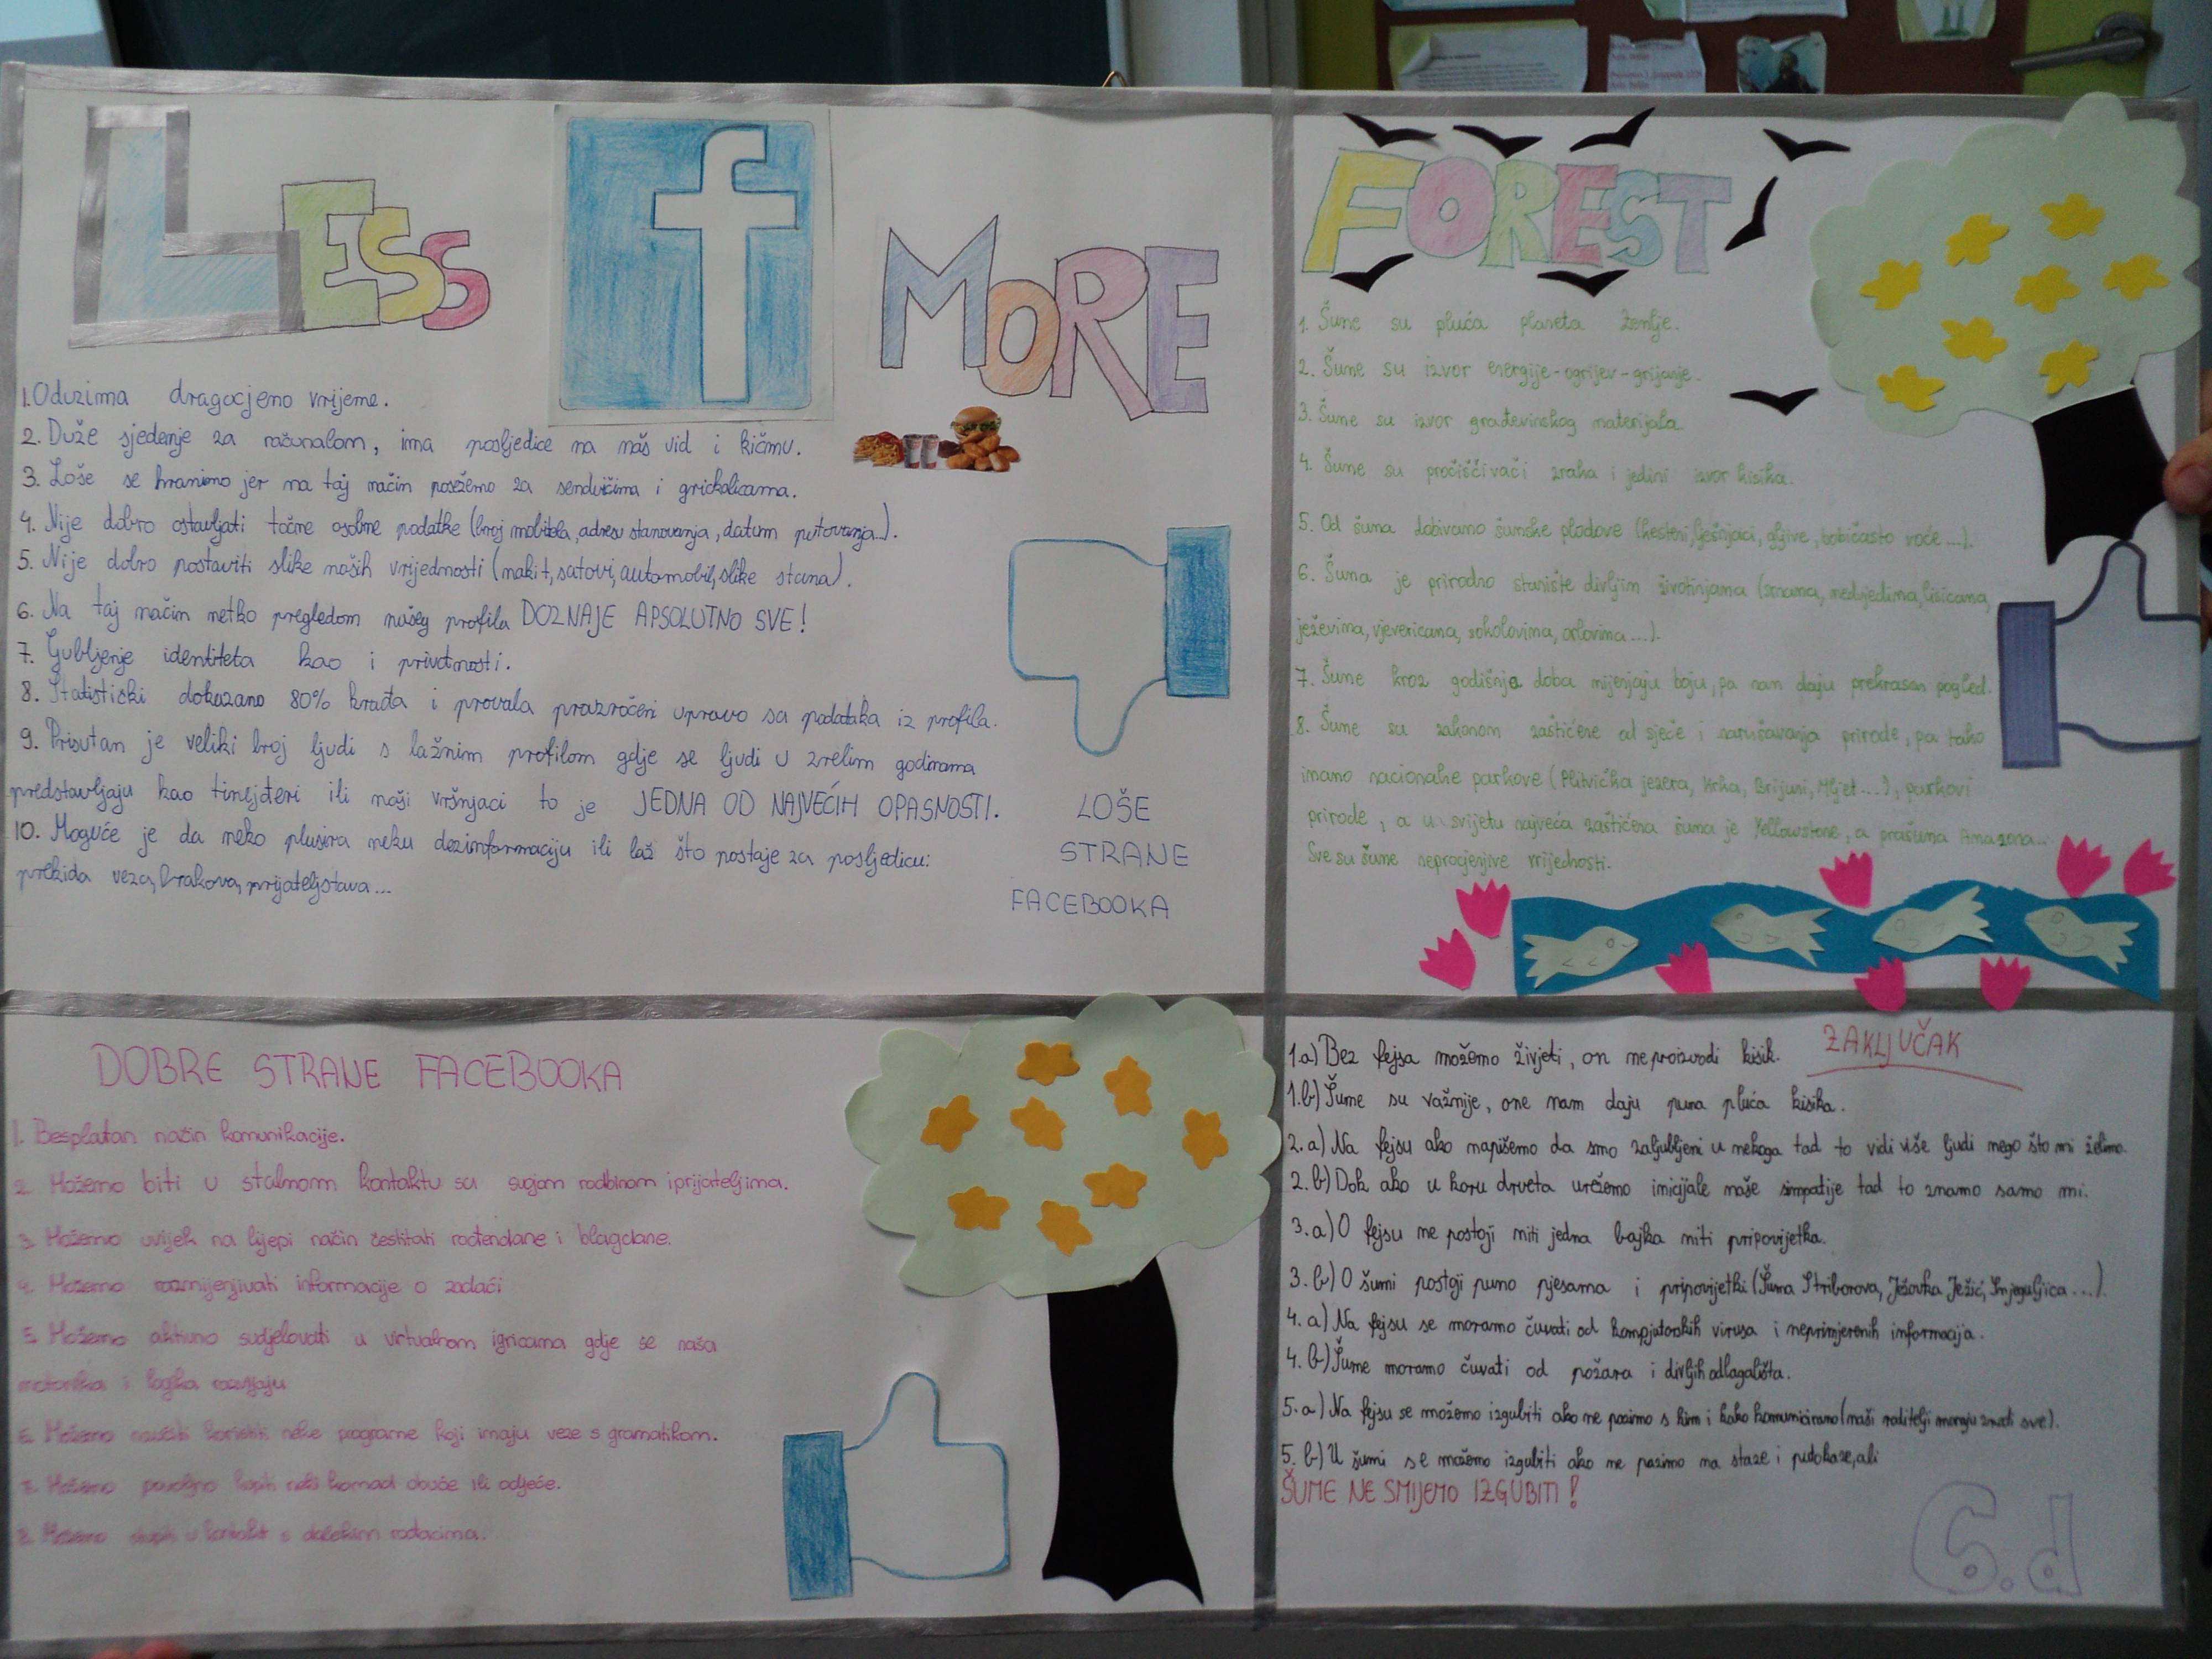 LESS f MORE
1. Oduzima dragocjeno vrijeme.
2. Duže sjedenje za računalom, ima posljedice na naš vid i kičmu.
3. Loše se hranimo jer na taj način posežemo za sendvičima i grickalicama.
4. Nije dobro ostavljati točne osobne podatke (broj mobitela, adresu stanovanja, datum putovanja...).
5. Nije dobro postaviti slike naših vrijednosti (nakit, satovi, automobil, slike stana).
6. Na taj način netko pregledom našeg profila DOZNAJE APSOLUTNO SVE!
7. Gubljenje identiteta kao i privatnosti.
8. Statistički dokazano 80% krađa i provala prouzročeni upravo sa podataka iz profila.
9. Prisutan je veliki broj ljudi s lažnim profilom gdje se ljudi u zrelim godinama
predstavljaju kao tinejđeri ili naši vršnjaci to je JEDNA OD NAJVEĆIH OPASNOSTI.
10. Moguće je da neko plusira neku dezinformaciju ili laž što postaje za posljedicu:
prekida veza, brakova, prijateljstava...
LOŠE
STRANE
FACEBOOKA
FOREST
1. Šume su pluća planeta Zemlje.
2. Šume su izvor energije-ogrijev-grijanje.
3. Šume su izvor građevinskog materijala
4. Šume su pročišćivači zraka i jedini izvor kisika.
5. Od šuma dobivamo šumske plodove (kesteni, lješnjaci, gljive, bobičasto voće ...).
6. Šuma je prirodno stanište divljim životinjama (srnama, medvjedima, lisicama,
ježevima, vjevericama, sokolovima, orlovima ...).
7. Šume kroz godišnja doba mijenjaju boju, pa nam daju prekrasan pogled.
8. Šume su zakonom zaštićene od sječe i narušavanja prirode, pa tako
imamo nacionalne parkove (Plitvička jezera, Krka, Brijuni, Mljet ...), parkovi
prirode, a u svijetu najveća zaštićena šuma je Yellowstone, a prašuma Amazona...
Sve su šume neprocjenjive vrijednosti.
DOBRE STRANE FACEBOOKA
1. Besplatan način komunikacije.
2. Možemo biti u stalnom kontaktu sa svojom rodbinom i prijateljima.
3. Možemo uvijek na lijepi način čestitati rođendane i blagdane.
4. Možemo razmijenjivati informacije o zadaći
5. Možemo aktivno sudjelovati u virtualnom igricama gdje se naša
motorika i logika razvijaju
6. Možemo naučiti koristiti neke programe koji imaju veze s gramatikom.
7. Možemo povoljno kupiti neki komad obuće ili odjeće.
8. Možemo stupiti u kontakt s dalekim rođacima.
ZAKLJUČAK
1.a) Bez fejsa možemo živjeti, on ne proizvodi kisik.
1.b) Šume su važnije, one nam daju puna pluća kisika.
2.a) Na fejsu ako napišemo da smo zaljubljeni u nekoga tad to vidi više ljudi nego što mi želimo.
2.b) Dok ako u koru drveta urežemo inicijale naše simpatije tad to znamo samo mi.
3.a) O fejsu ne postoji niti jedna bajka niti pripovijetka.
3.b) O šumi postoji puno pjesama i pripovijetki (Šuma Striborova, Ježovka Ježić, Snjeguljica ...).
4.a) Na fejsu se moramo čuvati od kompjutorskih virusa i neprimjerenih informacija.
4.b) Šume moramo čuvati od požara i divljih odlagališta.
5.a) Na fejsu se možemo izgubiti ako ne pazimo s kim i kako komuniciramo (naši roditelji moraju znati sve).
5.b) U šumi se možemo izgubiti ako ne pazimo na staze i putokaze, ali
ŠUME NE SMIJEMO IZGUBITI!
6.d